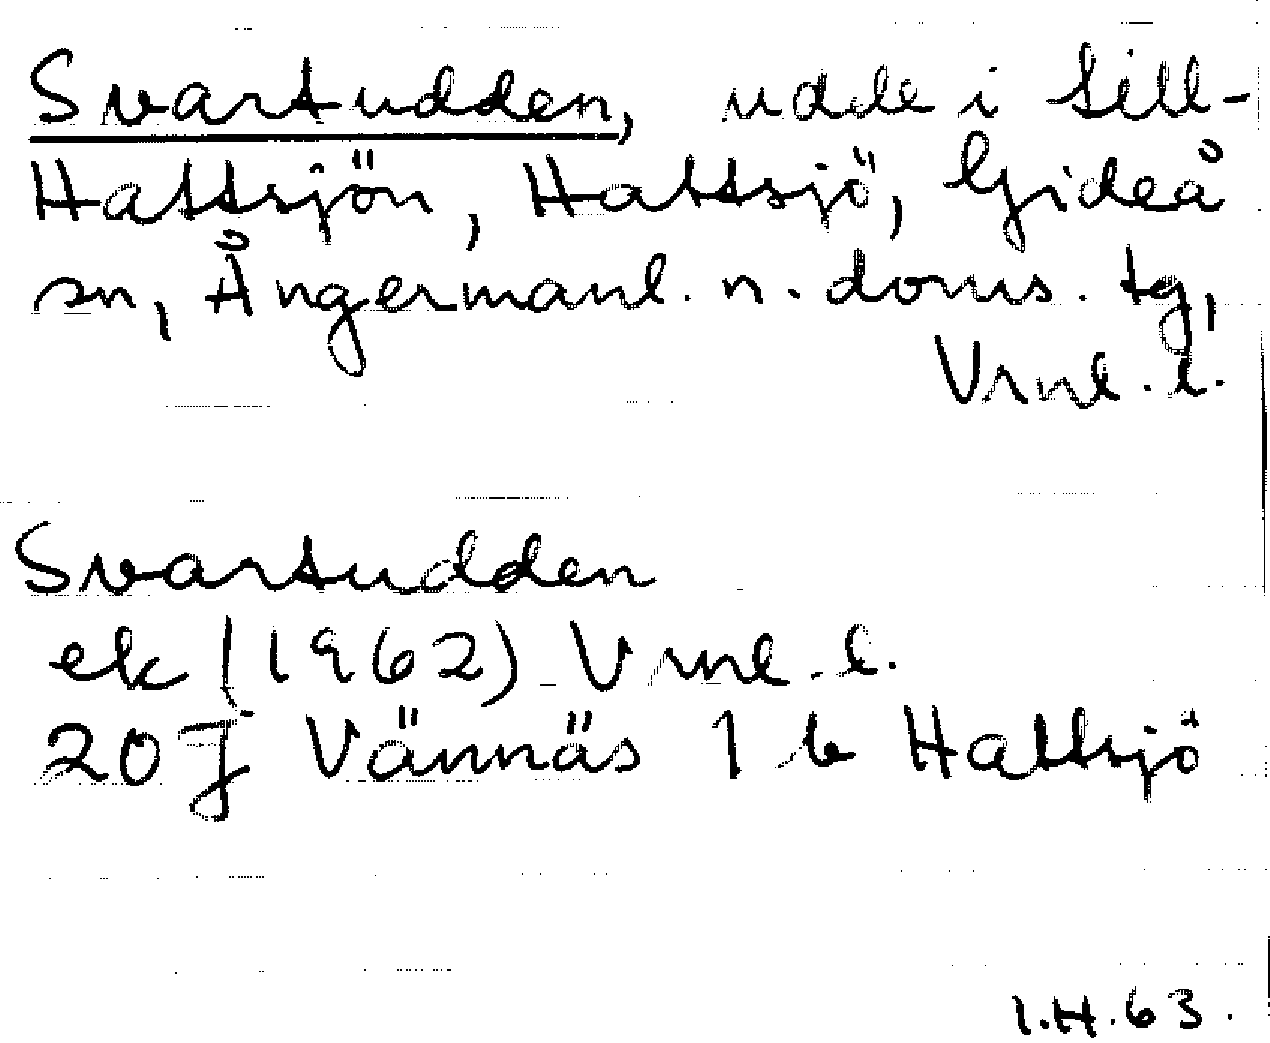 Svartudden, udde i Lill-
Hattsjön, Hattsjö, Gideå
sn, Ångermanl. n. doms. tg,
Vrnl. l.
Svartudden
ek (1962) Vrnl. l.
20J Vännäs 1 b Hattsjö
I.H.63.